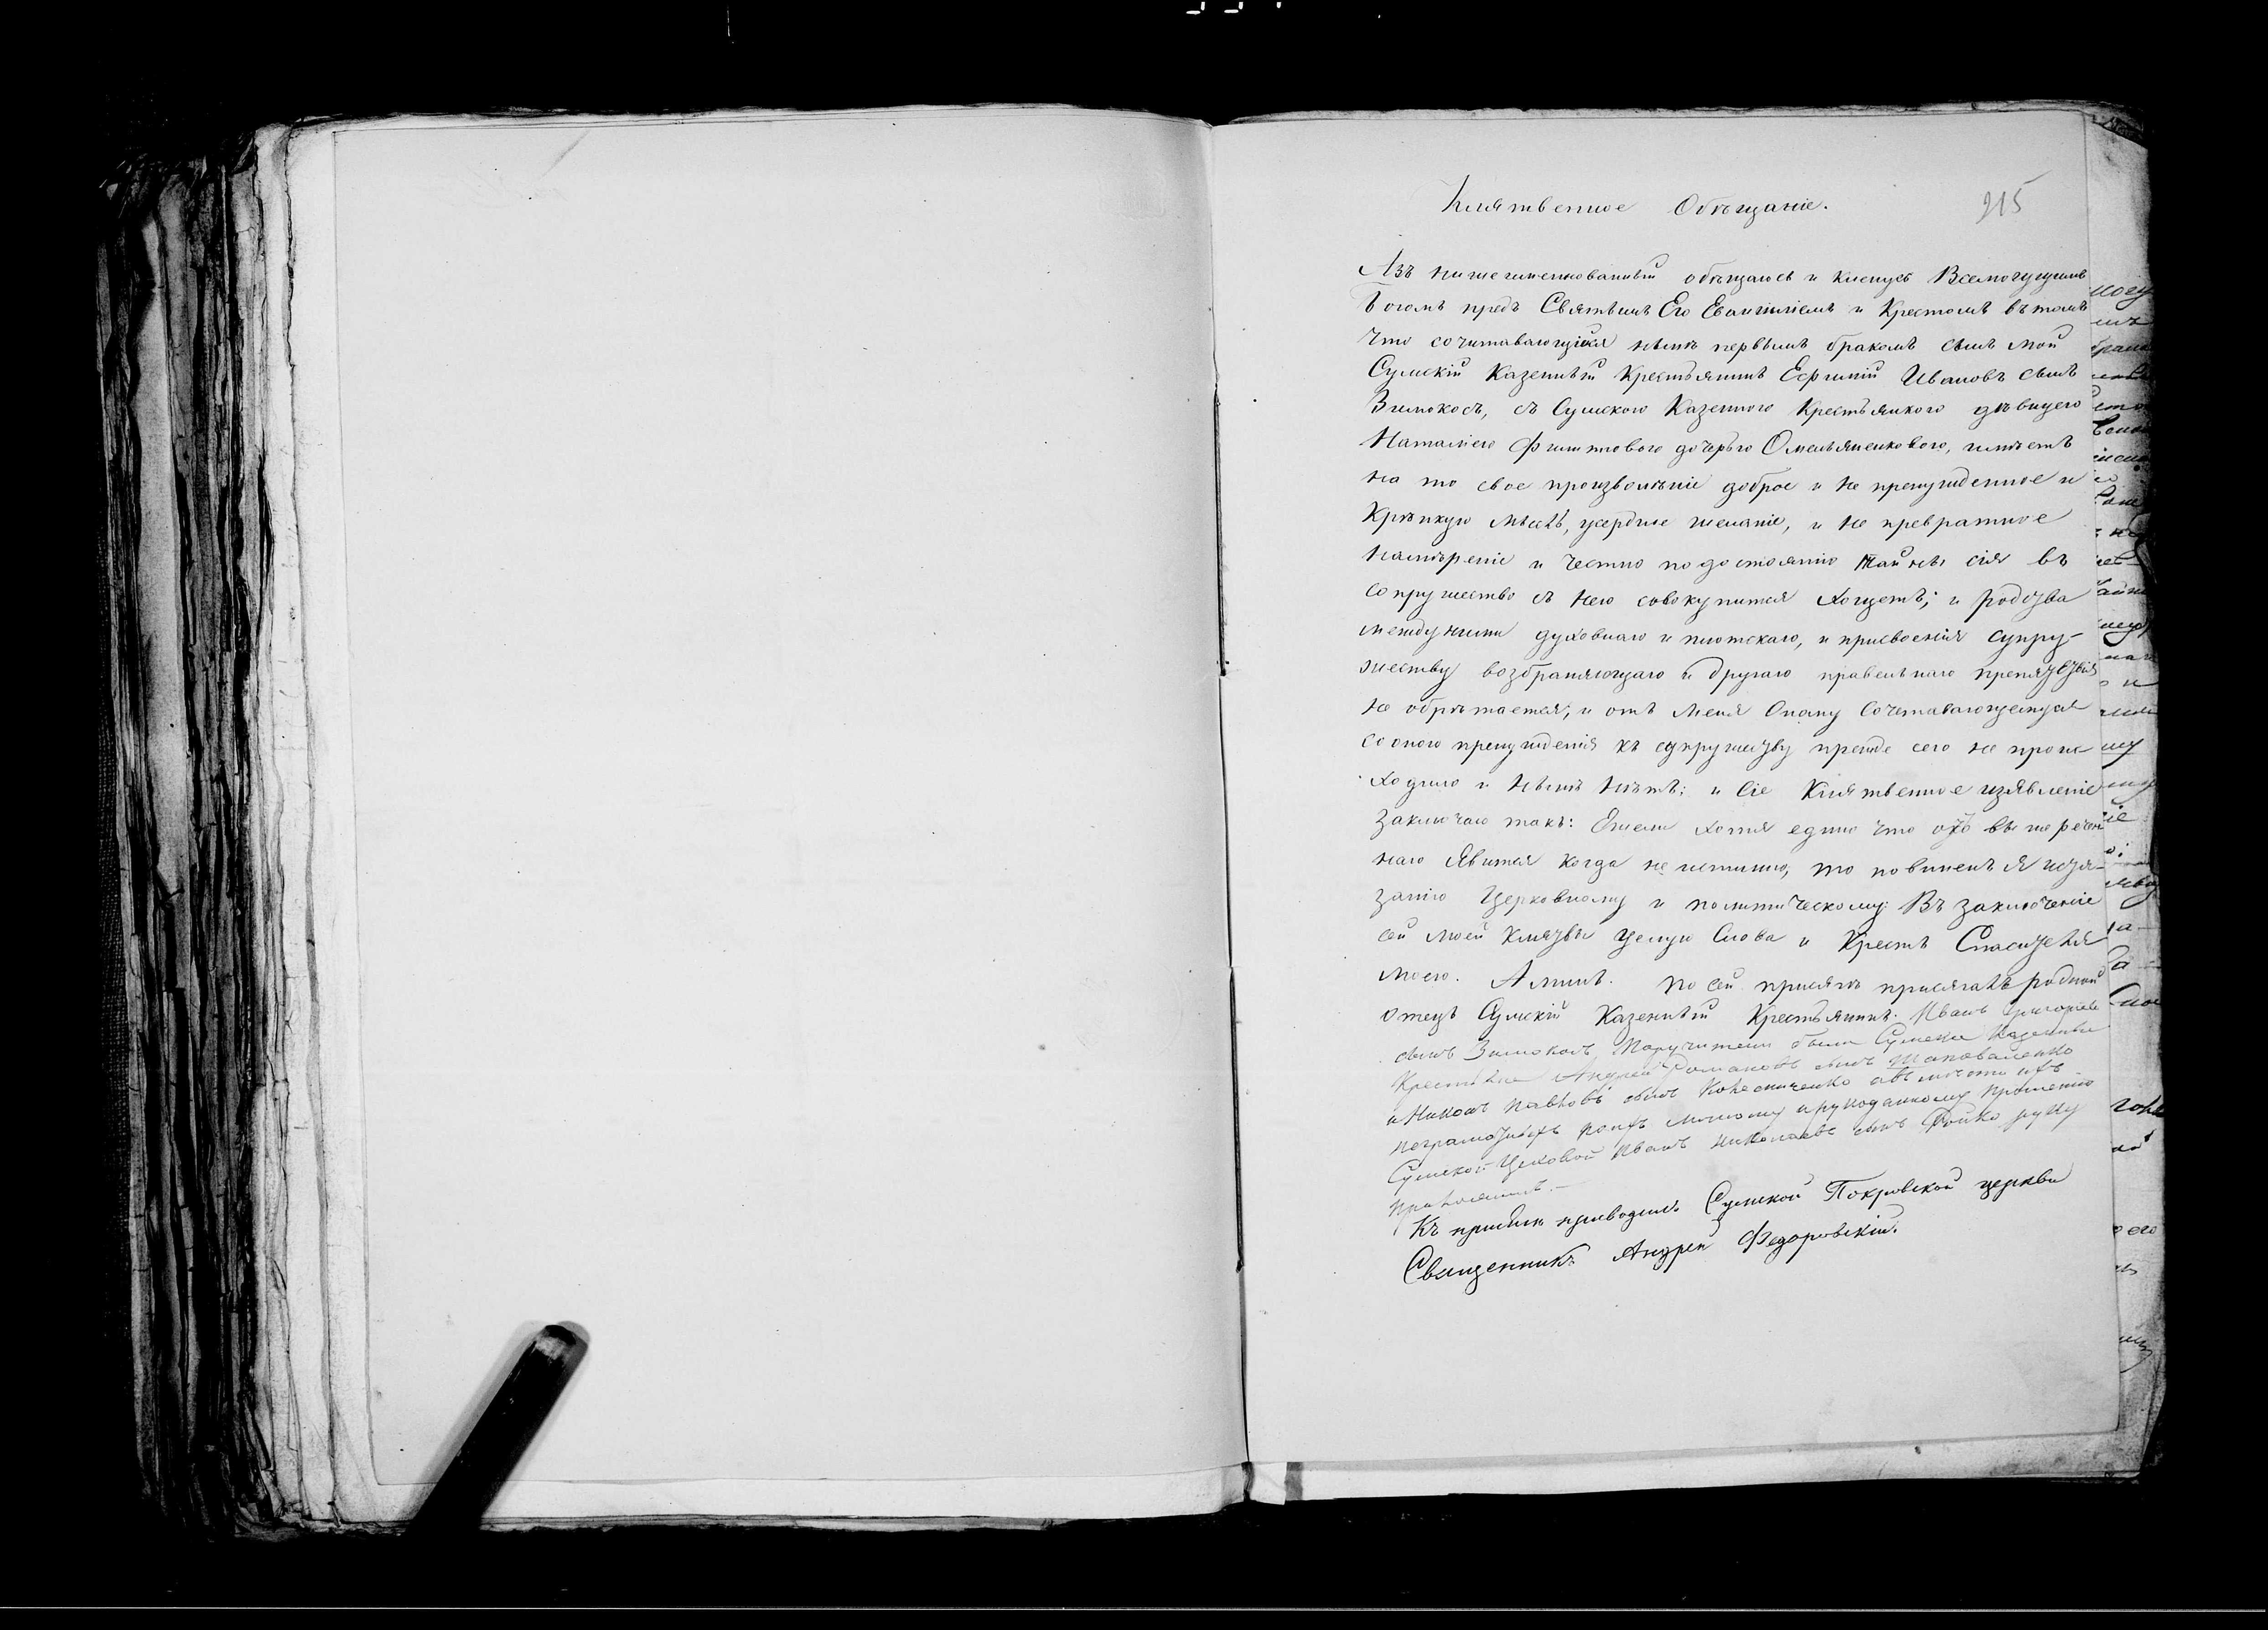 Клятвенное Обѣщаніе.
215
Азъ нижеименнованный обѣщаюсь и кленусь Всемогущимъ
Богомъ предъ Святымъ Его Евангиліемъ и Крестомъ въ томъ
что сочитавающійся нынѣ первымъ бракомъ сынъ мой
Сумскій Казенный Крестьянинъ Ефимій Ивановъ сынъ
Зимокосъ, съ Сумского Казенного Крестьянкого дѣвицею
Наталіею Филиповою дочерью Омельяненковою, имѣетъ
на то свое произволѣніе доброе и не принужденное и
Крѣпкую мысль, усердное желаніе, и не превратное
намѣреніе и честно по достоянію тайны сія въ
сопружество съ нею совокупится хощетъ; и родства
междуними духовнаго и плотскаго, и присвоенія супру-
жеству возбраняющаго и другаго правельнаго препятствія
не обрѣтается, и отъ меня оному сочетавающемуся
со оною принужденія къ супружеству прежде сего не проис
ходило и нынѣ нѣтъ: и сіе Клятвенное изявленіе
заключаю такъ: Ежели хотя едино что отъ вышеречен
наго явится когда не истинно, то повиненъ я истя-
занію Церковному и политическому. Въ заключеніе
сей моей Клятвы целую Слова и Крестъ Спасителя
моего. Аминь. По сей присягѣ присягалъ родной
отецъ Сумскій Казенный Крестьянинъ Иванъ Григорьевъ
сынъ Зимокосъ, Поручители были Сумские Казенные
Крестьяне Андрей Романовъ сынъ Шаповаленко
и Никонъ Павловъ сынъ Колесниченко авместо ихъ
неграмотныхъ поихъ личному ирукоданному прошению
Сумской Цеховой Иванъ Николаевъ сынъ Бойко руку
приложилъ.
Къ присягѣ приводилъ Сумской Покровской церкви
Священникъ Андрей Федоровскій.